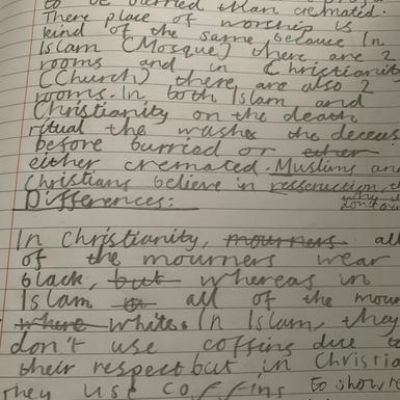 to be burried than cremated.
There place of worship is
kind of the same because In
Islam (Mosque) there are 2
rooms and in Christianity
(Church) there are also 2
rooms. In both Islam and
Christianity on the death
ritual the washes the deceas
before burried or either
either cremated. Muslims an
Christians believe in
Differences:
In Christianity, mourners all
of the mourners wear
black, but whereas in
Islam all of the mour
where white. In Islam, they
don't use coffins due to
their respect but in Christia
They use coffins to show re